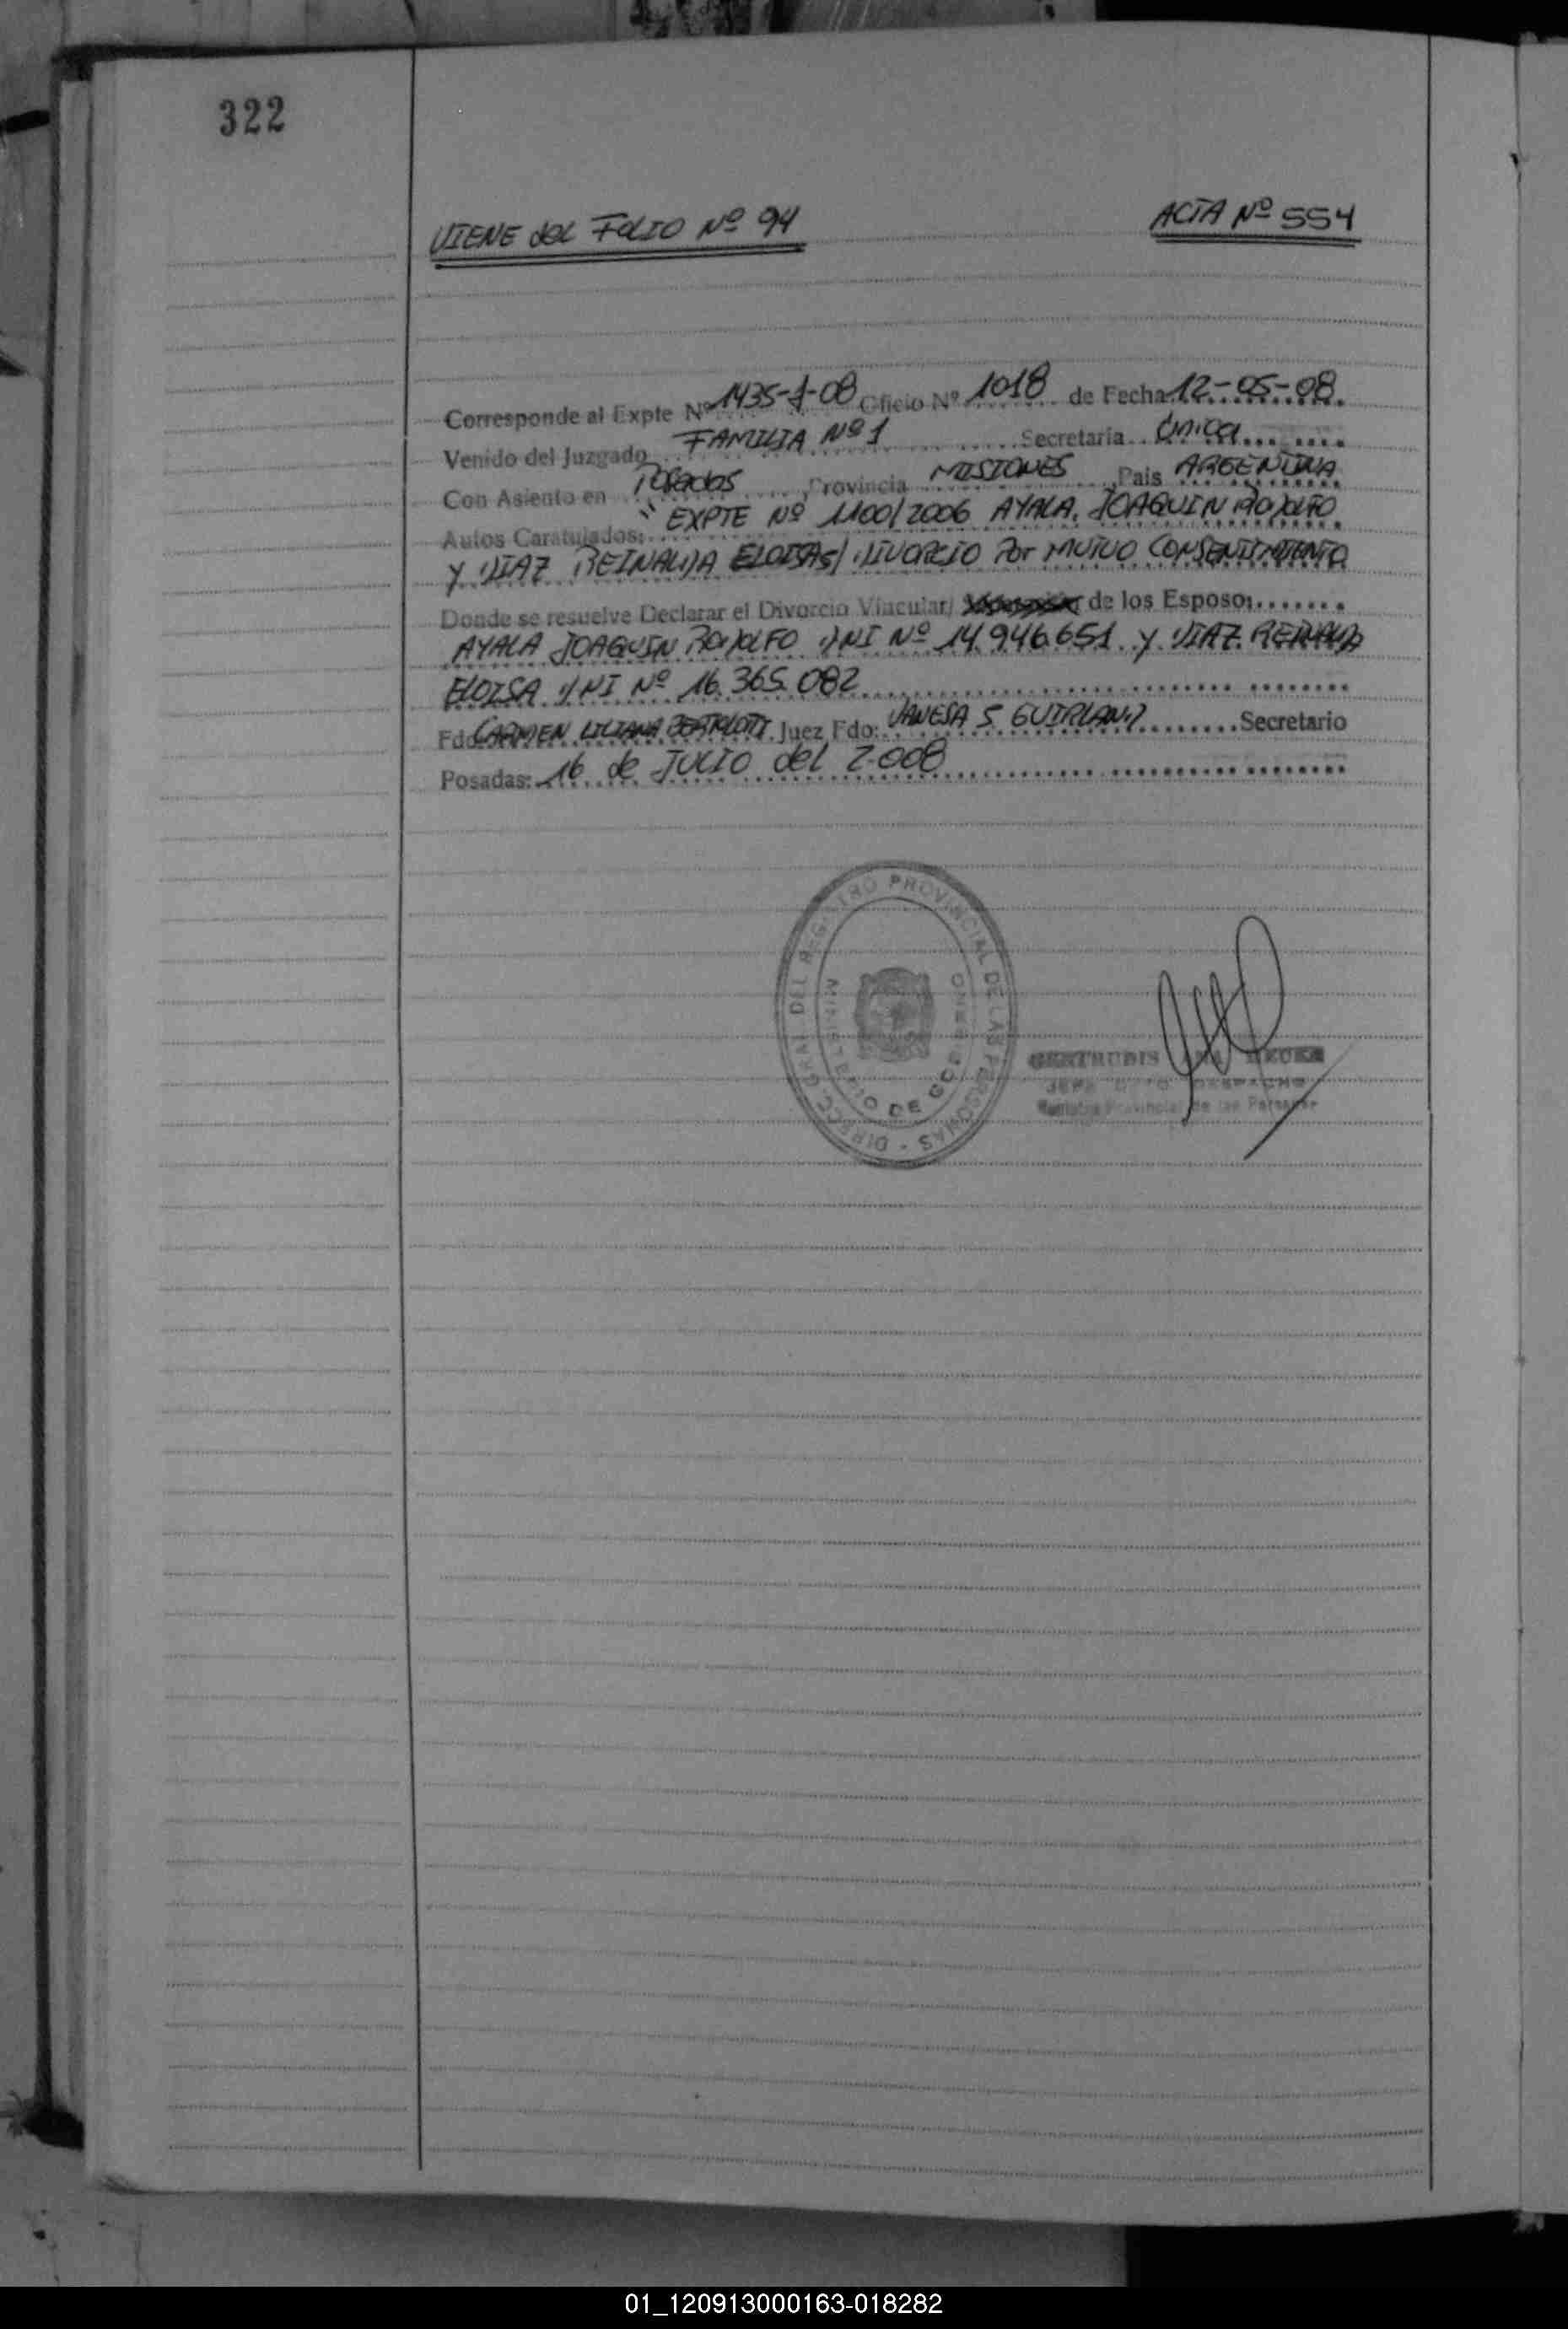 322
VIENE del FOLIO Nº 94
ACTA Nº 554
Corresponde al Expte Nº 1435-J-08 Oficio Nº 1018 de Fecha 12-05-08
Venido del Juzgado FAMILIA Nº 1 Secretaria Única
Con Asiento en Posadas, Provincia MISIONES, Pais ARGENTINA
Autos Caratulados: " EXPTE Nº 1100/2006 AYALA, JOAQUIN RODOLFO
Y DIAZ REINALDA ELOISA s/ DIVORCIO Por MUTUO CONSENTIMIENTO
Donde se resuelve Declarar el Divorcio Vincular/ de los Esposo:
AYALA JOAQUIN RODOLFO DNI Nº 14.946.651 Y DIAZ REINALDA
ELOISA DNI Nº 16.365.082
Fdo: CARMEN LILIANA Juez Fdo: VANESA S. GUIRLAND Secretario
Posadas: 16 de JULIO del 2.008
DIRECC. GRAL. DEL REGISTRO PROVINCIAL DE LAS PERSONAS -
MINISTERIO DE GOBIERNO
GERTRUDIS ANA
JEFE DPTO. DESPACHO
Registro Provincial de las Personas
01_120913000163-018282